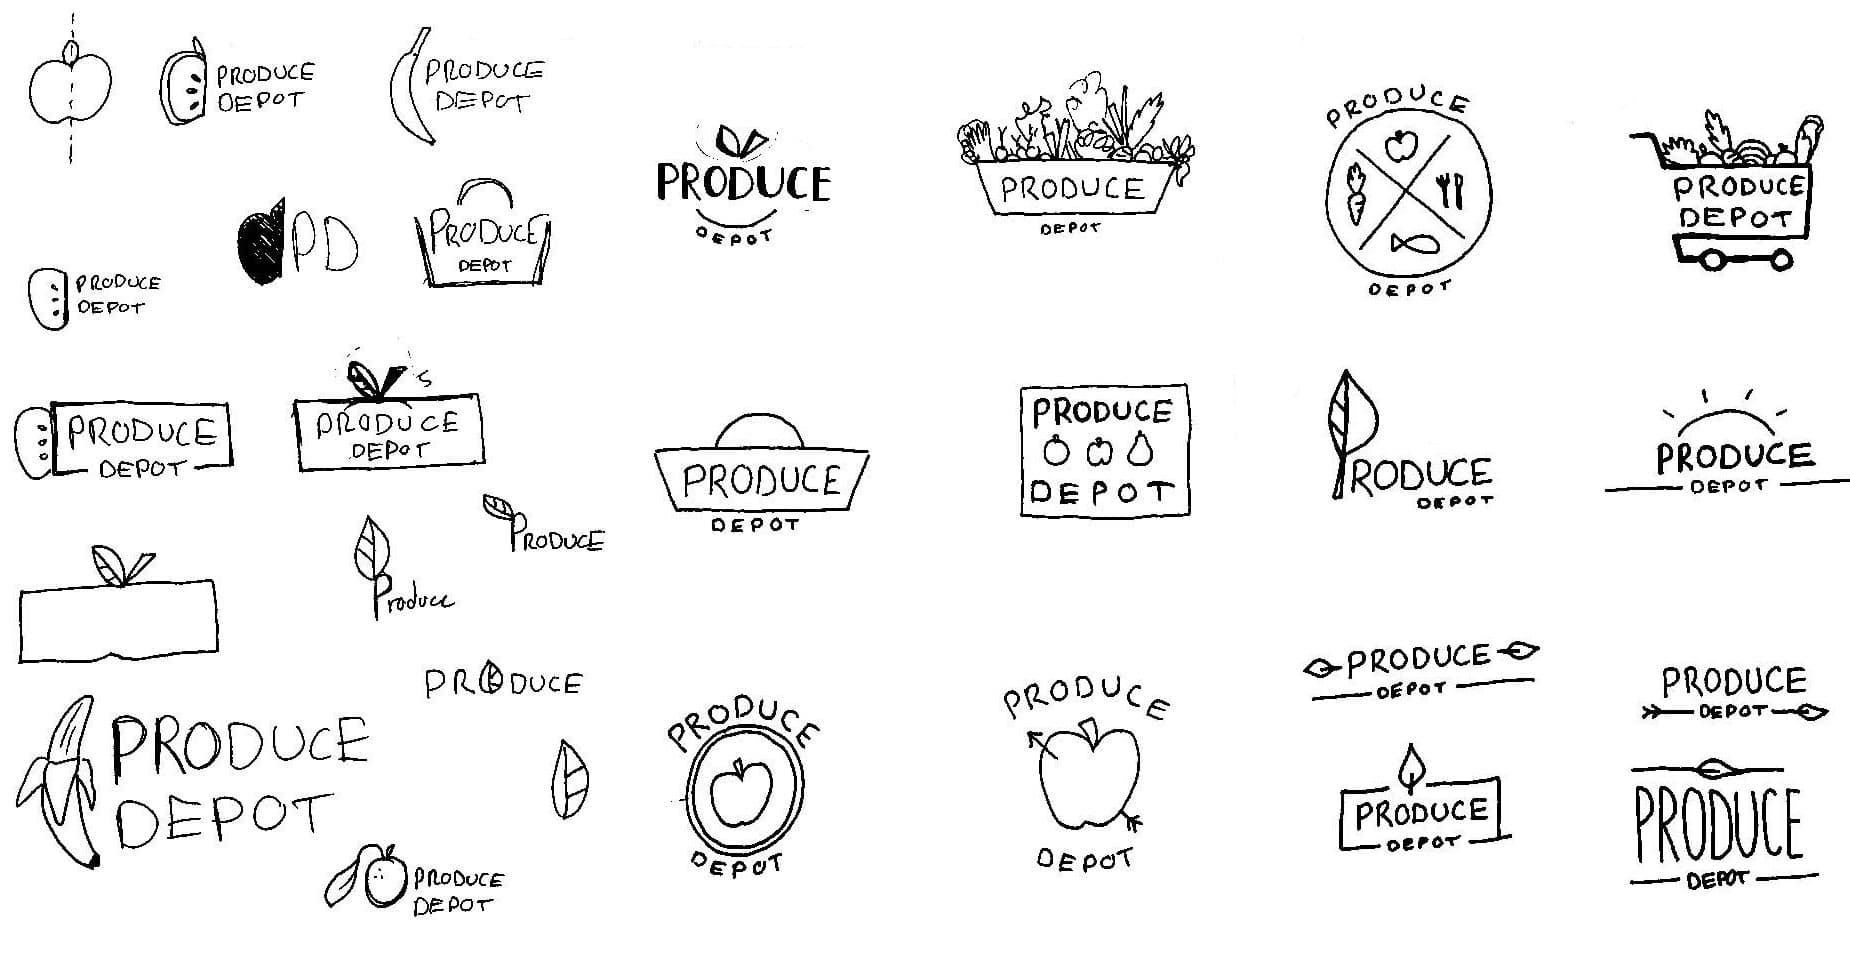 PRODUCE
DEPOT
PRODUCE
DEPOT
PRODUCE
DEPOT
PRODUCE
DEPOT
PRODUCE
DEPOT
PRODUCE
DEPOT
PD
PRODUCE
DEPOT
PRODUCE
DEPOT
PRODUCE
DEPOT
PRODUCE
DEPOT
PRODUCE
DEPOT
PRODUCE
DEPOT
PRODUCE
DEPOT
PRODUCE
DEPOT
PRODUCE
DEPOT
PRODUCE
Produce
PRODUCE
PRODUCE
DEPOT
PRODUCE
DEPOT
PRODUCE
DEPOT
PRODUCE
DEPOT
PRODUCE
DEPOT
PRODUCE
DEPOT
PRODUCE
DEPOT
PRODUCE
DEPOT
PRODUCE
DEPOT